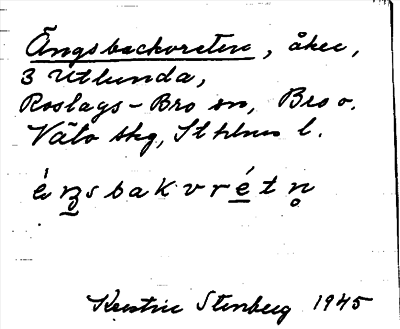 Ängsbackvreten, åker,
3 Utlunda,
Roslags-Bro sn, Bro o.
Väto skg, Sthlms l.
é n̲ʒ s b a k v r é̲ t n̥
Kerstin Stenberg 1945